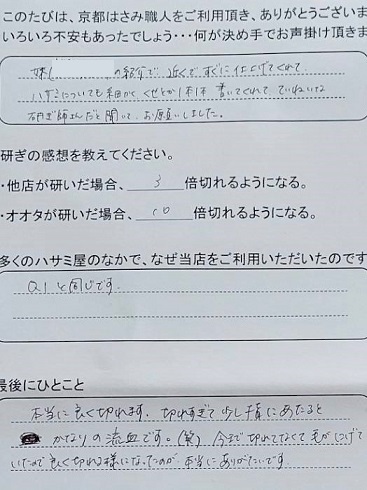 このたびは、京都はさみ職人をご利用頂き、ありがとうございま
いろいろ不安もあったでしょう・・・何が決め手でお声掛け頂きま
の紹介で、近くですぐに仕上げてくれて
ハサミについても細かく くせとか1本1本 書いてくれて ていねいな
研ぎ師さんだと聞いて、お願いしました。
研ぎの感想を教えてください。
・他店が研いだ場合、 3 倍切れるようになる。
・オオタが研いだ場合、 10 倍切れるようになる。
多くのハサミ屋のなかで、なぜ当店をご利用いただいたのです
Q1と同じです。
最後にひとこと
本当に良く切れます。切れすぎて少し指にあたると
かなりの流血です。(笑) 今まで切れてなくて毛がにげて
いたので良く切れる様になったのが、本当にありがたいです。